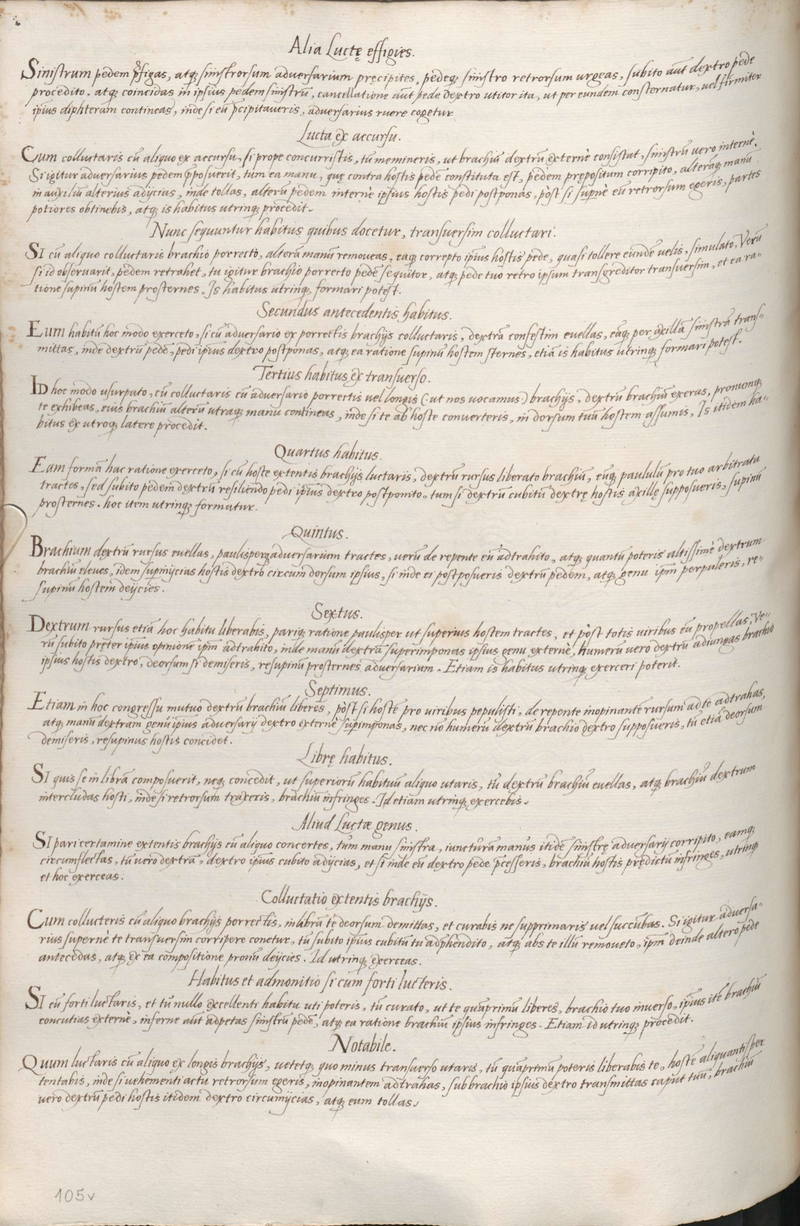 Alia Luctę effigies.
Sinistrum pedem p̄figas, atq; sinistrorsum adversarium pręcipites, pedeq; sinistro retrorsum urgeas, subito aut̄ dextro pede
procedito. atq; coincidas in ipsius pedem sinistrū, cancellatione aut̄ pede dextro utitor ita, ut per eundem consternatur, vel firmiter
ipsius diphteram contineas, inde si eū p̄cipitaveris, adversarius ruere cogetur
Lucta ex accursu.
Cum colluctaris cū aliquo ex accursu, si prope concurristis, tū memineris, ut brachiū dextrū externè consistat, sinistrū vero internè.
Si igitur adversarius pedem p̄posuerit, tum ea manu, quę contra hostis pedē constituta est, pedem prępositum corripito, alteraq; manu
in auxiliū alterius adijcias, inde tollas, alterū pedem internè ipsius hostis pedi postponas, pòst si supnè eū retrorsum egeris, partes
potiores obtinebis, atq; is habitus utrinq; procedit.
Nunc sequuntur habitus quibus docetur, transversim colluctari.
Si cū aliquo colluctaris brachio porrecto, alterā manū removeas, eaq; correpto ipsius hostis pede, quasi tollere eundē velis, simulato, Verū
si id observarit, pedem retrahet, tu igitur brachio porrecto pedē sequitor, atq; pede tuo retro ipsum transgreditor transversim, et ea ra-
tione supinū hostem prosternes. Is habitus utrinq; formari potest.
Secundus antecedentis habitus.
Eum habitū hoc modo exerceto, si cū adversario ex porrectis brachijs colluctaris, dextrā confestim evellas, eāq; per axillā sinistrā trans-
mittas, inde dextrū pedē, pedi ipsius dextro postponas, atq; ea ratione supinū hostem sternes, etiā is habitus utrinq; formari potest.
Tertius habitus ex transverso.
Id hoc modo usurpato, cū colluctaris cū adversario porrectis vel longis (ut nos vocamus) brachijs, dextrū brachiū exeras, pronumq;
te exhibeas, eius brachiū alterū utraq; manu contineas, inde si te ab hoste converteris, in dorsum tuū hostem assumis, Is itidem ha-
bitus ex utroq; latere procedit.
Quartus habitus.
Eam formā hac ratione exerceto, si cū hoste extentis brachijs luctaris, dextrū rursus liberato brachiū, eūq; paululū pro tuo arbitratu
tractes, sed subito pedem dextrū resiliendo pedi ipsius dextro postponito, tum si dextrū cubitū dextrę hostis axillę supposueris, supinū
prosternes. hoc item utrinq; formatur.
Quintus.
Brachium dextrū rursus evellas, paulisperq; adversarium tractes, verū de repente eū adtrahito, atq; quantū poteris altissimè dextrum
brachiū eleves, idem supinijcias hostis dextro circum dorsum ipsius, si inde ei postposueris dextrū pedem, atq; genu ipm̄ perpuleris, re-
supinū hostem deijcies.
Sextus.
Dextrum rursus etiā hoc habitu liberabis, pariq; ratione paulisper ut superius hostem tractes, et pòst totis viribus eū propellas, Ve-
rū subito pręter ipsius opinionē ipm̄ adtrahito, inde manū dextrā superimponas ipsius genu externè, humerū vero dextrū adiungas brachio
ipsius hostis dextro, deorsum si demiseris, resupinū prosternes adversarium. Etiam is habitus utrinq; exerceri poterit.
Septimus.
Etiam in hoc congressu mutuo dextrū brachiū liberes, pòst si hostē pro viribus pepulisti, de repente inopinantē rursum ad te adtrahas,
atq; manū dextram genu ipsius adversarij dextro externè supimponas, nec nō humerū dextrū brachio dextro supposueris, tū etiā deorsum
demiseris, resupinus hostis concidet.
Librę habitus.
Si quis se in librā composuerit, neq; concedit, ut superiorū habituū aliquo utaris, tū dextrū brachiū evellas, atq; brachiū dextrum
intercludas hosti, inde si retrorsum traxeris, brachiū infringes. Id etiam utrinq; exercebis.
Aliud Luctæ genus.
Si pari certamine extentis brachijs cū aliquo concertes, tum manu sinistra, iuncturā manus itidē sinistrę adversarij corripito, eamq;
circumflectas, tū vero dextrā, dextro ipsius cubito adijcias, et si inde eū dextro pede p̄cesseris, brachiū hostis prędictū infringes, utrinq;
et hoc exerceas.
Colluctatio extentis brachijs.
Cum collucteris cū aliquo brachijs porrectis, in librā te deorsum demittas, et curabis ne supprimaris vel succūbas. Si igitur adversa-
rius supernè te transversim corripere conetur, tū subito ipsius cubitū tu adphendito, atq; abs te illū removeto, ipm̄ deinde altero pede
antecedas, atq; ex ea compositione pronū deijcies. Id utrinq; exerceas.
Habitus et admonitio si cum forti lucteris.
Si cū forti luctaris, et tū nullo excellenti habitu uti poteris, tū curato, ut te quāprimū liberes, brachio tuo inverso, ipsius itē brachiū
concutias externè, infernè aut̄ adpetas sinistrū pedē, atq; ea ratione brachiū ipsius infringes. Etiam id utrinq; procedit.
Notabile.
Quum luctaris cū aliquo ex longis brachijs, vetetq; quo minus transverso utaris, tū quāprimū poteris liberabis te, hostē aliquantisper
tentabis, inde si vehementi actu retrorsum egeris, inopinantem adtrahas, sub brachio ipsius dextro transmittas caput tuū, brachiū
vero dextrū pedi hostis itidem dextro circumijcias, atq; eum tollas.
105v